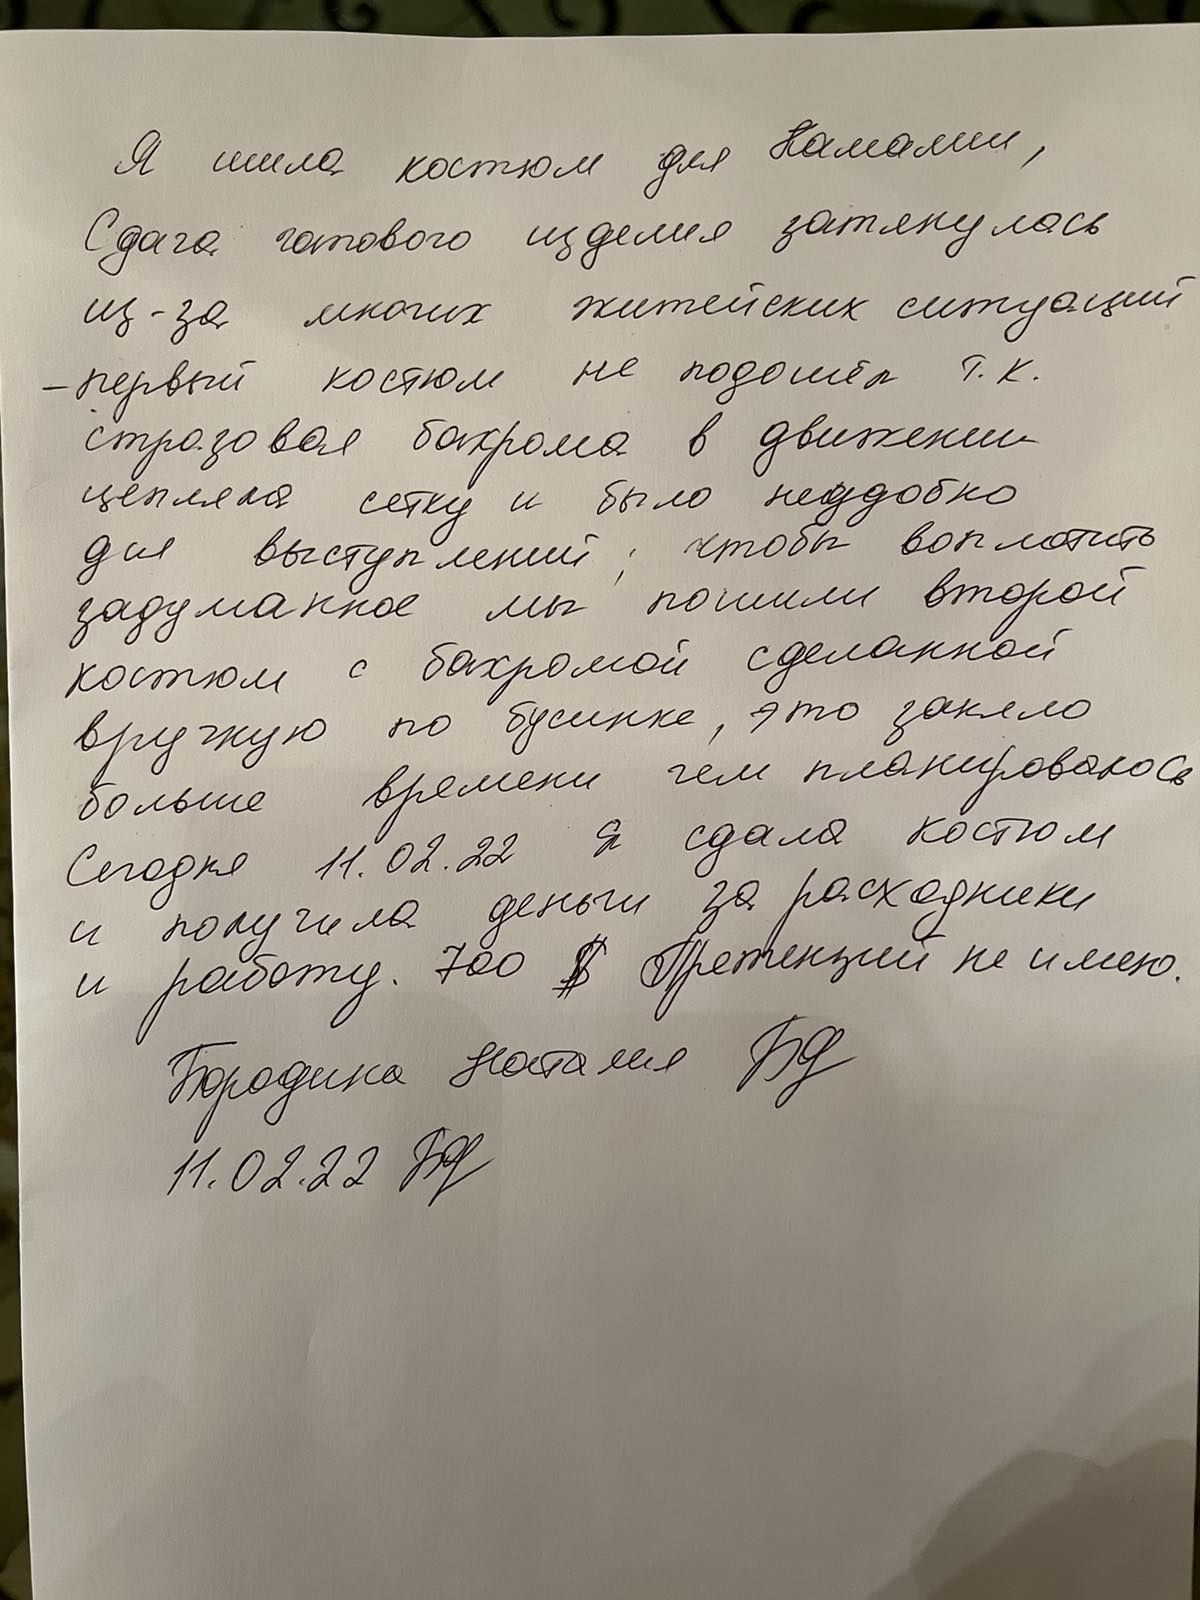 Я шила костюм для Наталии,
Сдача готового изделия затянулась
из-за многих житейских ситуаций
- первый костюм не подошёл т.к.
стразовая бахрома в движении
цепляла сетку и было неудобно
для выступлений, чтобы воплотить
задуманное мы пошили второй
костюм с бахромой сделанной
вручную по бусинке, это заняло
больше времени чем планировалось
Сегодня 11.02.22 я сдала костюм
и получила деньги за расходники
и работу. 700 $ Претензий не имею.
Бородина Наталия
11.02.22